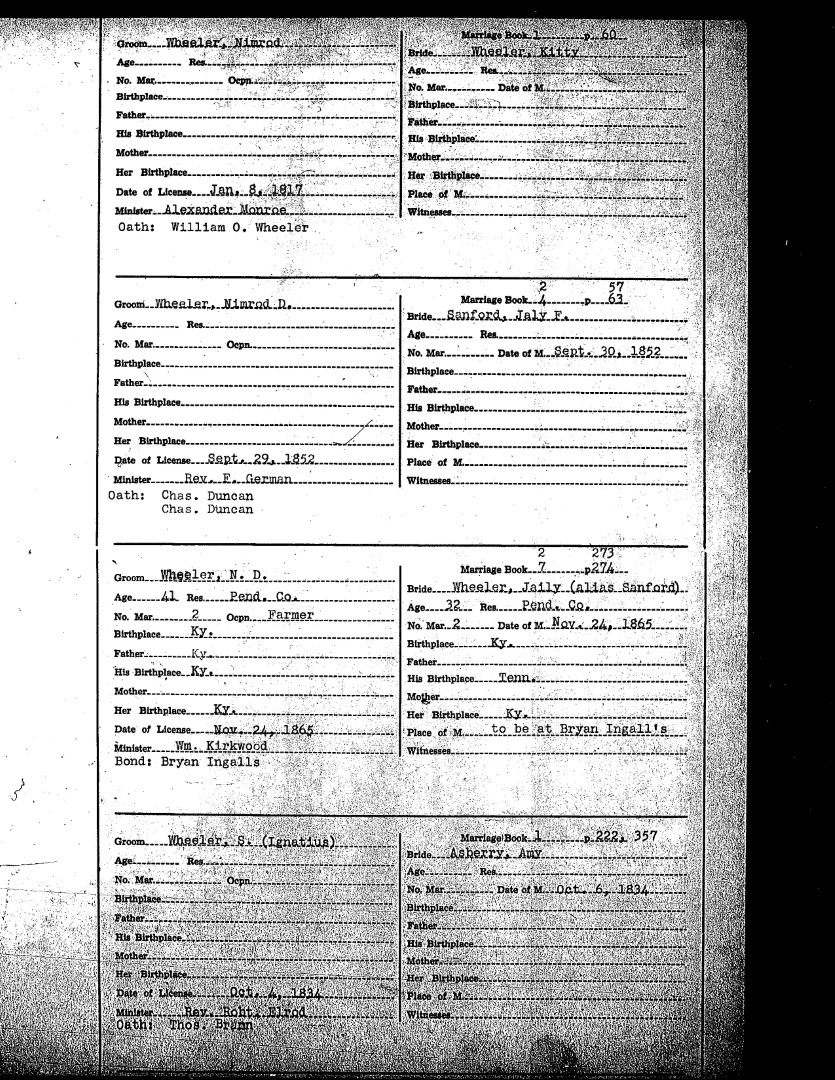 Marriage Book 1 p. 60
Groom Wheeler, Nimrod
Bride Wheeler, Kitty
Age Res.
Age Res.
No. Mar. Ocpn.
No. Mar. Date of M.
Birthplace
Birthplace
Father
Father
His Birthplace
His Birthplace
Mother
Mother
Her Birthplace
Her Birthplace
Date of License Jan. 8, 1817
Place of M.
Minister Alexander Monroe
Witnesses
Oath: William O. Wheeler
2 57
Marriage Book 4 p. 63
Groom Wheeler, Nimrod D.
Bride Sanford, Jaly F.
Age Res.
Age Res.
No. Mar. Ocpn.
No. Mar. Date of M. Sept. 30, 1852
Birthplace
Birthplace
Father
Father
His Birthplace
His Birthplace
Mother
Mother
Her Birthplace
Her Birthplace
Date of License Sept. 29, 1852
Place of M.
Minister Rev. F. German
Witnesses
Oath: Chas. Duncan
Chas. Duncan
2 273
Marriage Book 7 p274
Groom Wheeler, N. D.
Bride Wheeler, Jaily (alias Sanford)
Age 41 Res. Pend. Co.
Age 32 Res. Pend. Co.
No. Mar. 2 Ocpn. Farmer
No. Mar. 2 Date of M. Nov. 24, 1865
Birthplace Ky.
Birthplace Ky.
Father Ky.
Father
His Birthplace Ky.
His Birthplace Tenn.
Mother
Mother
Her Birthplace Ky.
Her Birthplace Ky.
Date of License Nov. 24, 1865
Place of M. to be at Bryan Ingall's
Minister Wm. Kirkwood
Witnesses
Bond: Bryan Ingalls
Marriage Book 1 p. 222, 357
Groom Wheeler, S. (Ignatius)
Bride Asberry, Amy
Age Res.
Age Res.
No. Mar. Ocpn.
No. Mar. Date of M. Oct. 6, 1834
Birthplace
Birthplace
Father
Father
His Birthplace
His Birthplace
Mother
Mother
Her Birthplace
Her Birthplace
Date of License Oct. 4, 1834
Place of M.
Minister Rev. Robt. Elrod
Witnesses
Oath: Thos.